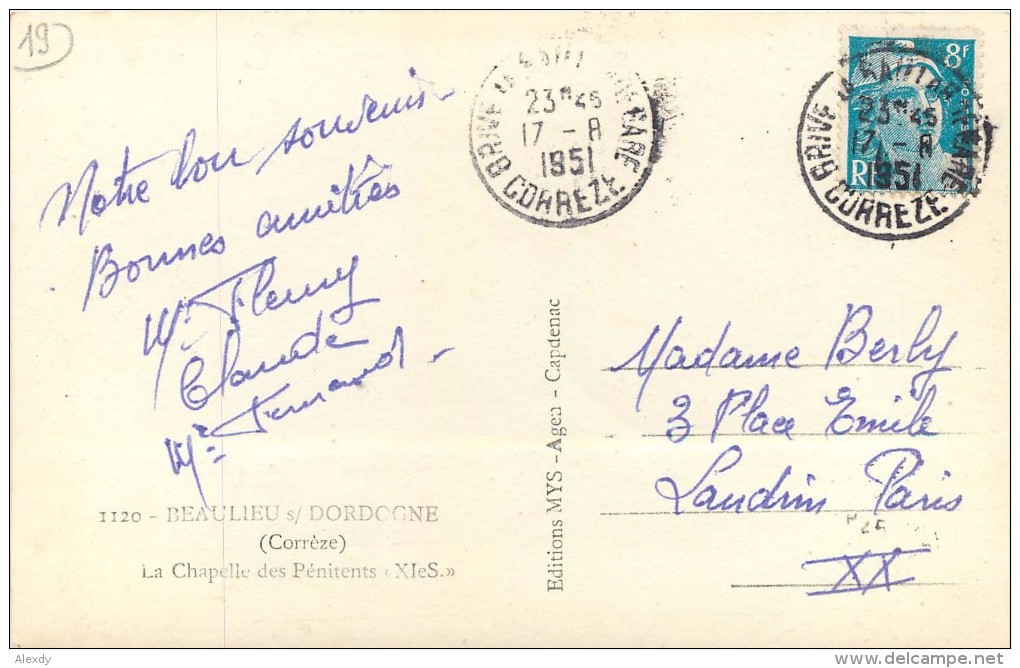 19
Notre bon souvenir
Bonnes amitiés
Mr Fleury
Claude
Mr Fernand
1120 - BEAULIEU s/ DORDOGNE
(Corrèze)
La Chapelle des Pénitents «XIeS.»
Editions MYS - Agen - Capdenac
BRIVE LA GAILLARDE GARE
23H45
17 - 8
1951
CORREZE
8F
BRIVE LA GAILLARDE GARE
23H45
17 - 8
1951
CORREZE
Madame Berly
3 Place Emile
Landrin Paris
XX
Alexdy
www.delcampe.net